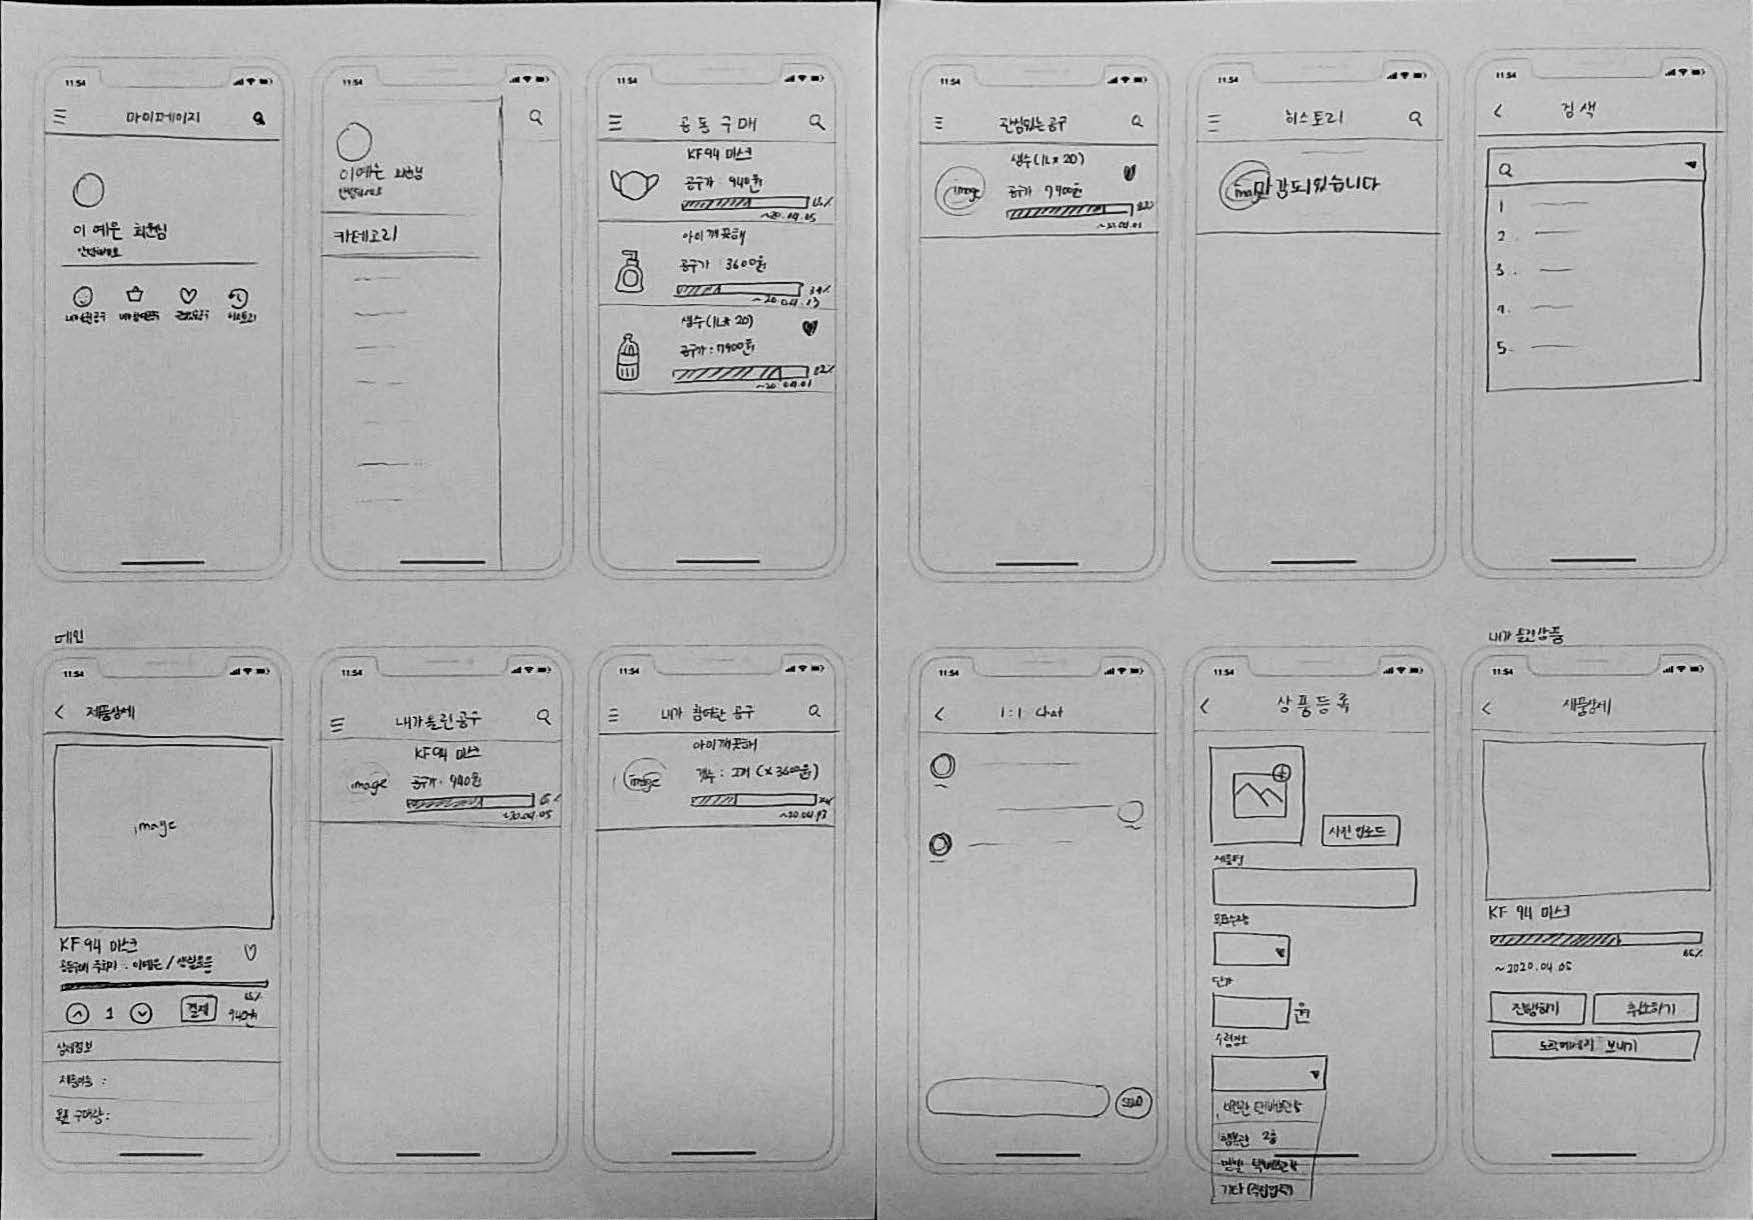 11:54
마이페이지
이예은 회원님
안녕하세요
내가 올린 공구
내가 참여한 공구
관심있는 공구
히스토리
11:54
이예은 회원님
안녕하세요
카테고리
11:54
공동구매
KF94 마스크
공구가 : 940원
65%
~20.04.05
아이깨끗해
공구가 : 3600원
34%
~20.04.13
생수(1L x 20)
공구가 : 7900원
82%
~20.04.01
11:54
관심있는 공구
image
생수(1L x 20)
공구가 7900원
82%
~20.04.01
11:54
히스토리
image
마감되었습니다
11:54
검색
1
2
3.
4.
5
메인
11:54
제품상세
image
KF94 마스크
공동구매 주최자 : 이예은 / 생필품
65%
1
결제
940원
상세정보
제품이름 :
목표 구매량 :
11:54
내가 올린 공구
image
KF94 마스크
공구가 : 940원
~20.04.05
11:54
내가 참여한 공구
image
아이깨끗해
갯수 : 2개 (x 3600원)
~20.04.13
11:54
1:1 Chat
SEND
11:54
상품등록
사진 업로드
제품명
목표수량
단가
원
수령장소
행복관 2층
기타 (직접입력)
내가 올린상품
11:54
제품상세
KF 94 마스크
65%
~2020.04.05
진행하기
취소하기
도착메세지 보내기